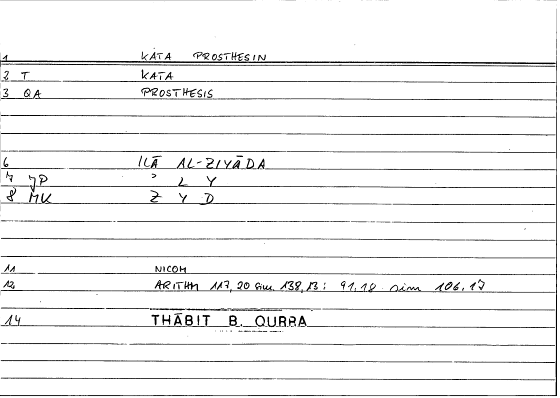 1 KATA PROSTHESIN
2 T KATA
3 QA PROSTHESIS
6 ILĀ AL-ZIYĀDA
7 JP ʾ L Y
8 MK Z Y D
11 NICOM
12 ARITHM 117,20 sim 138,13; 91,18 sim 106,17
14 THĀBIT B. QURRA